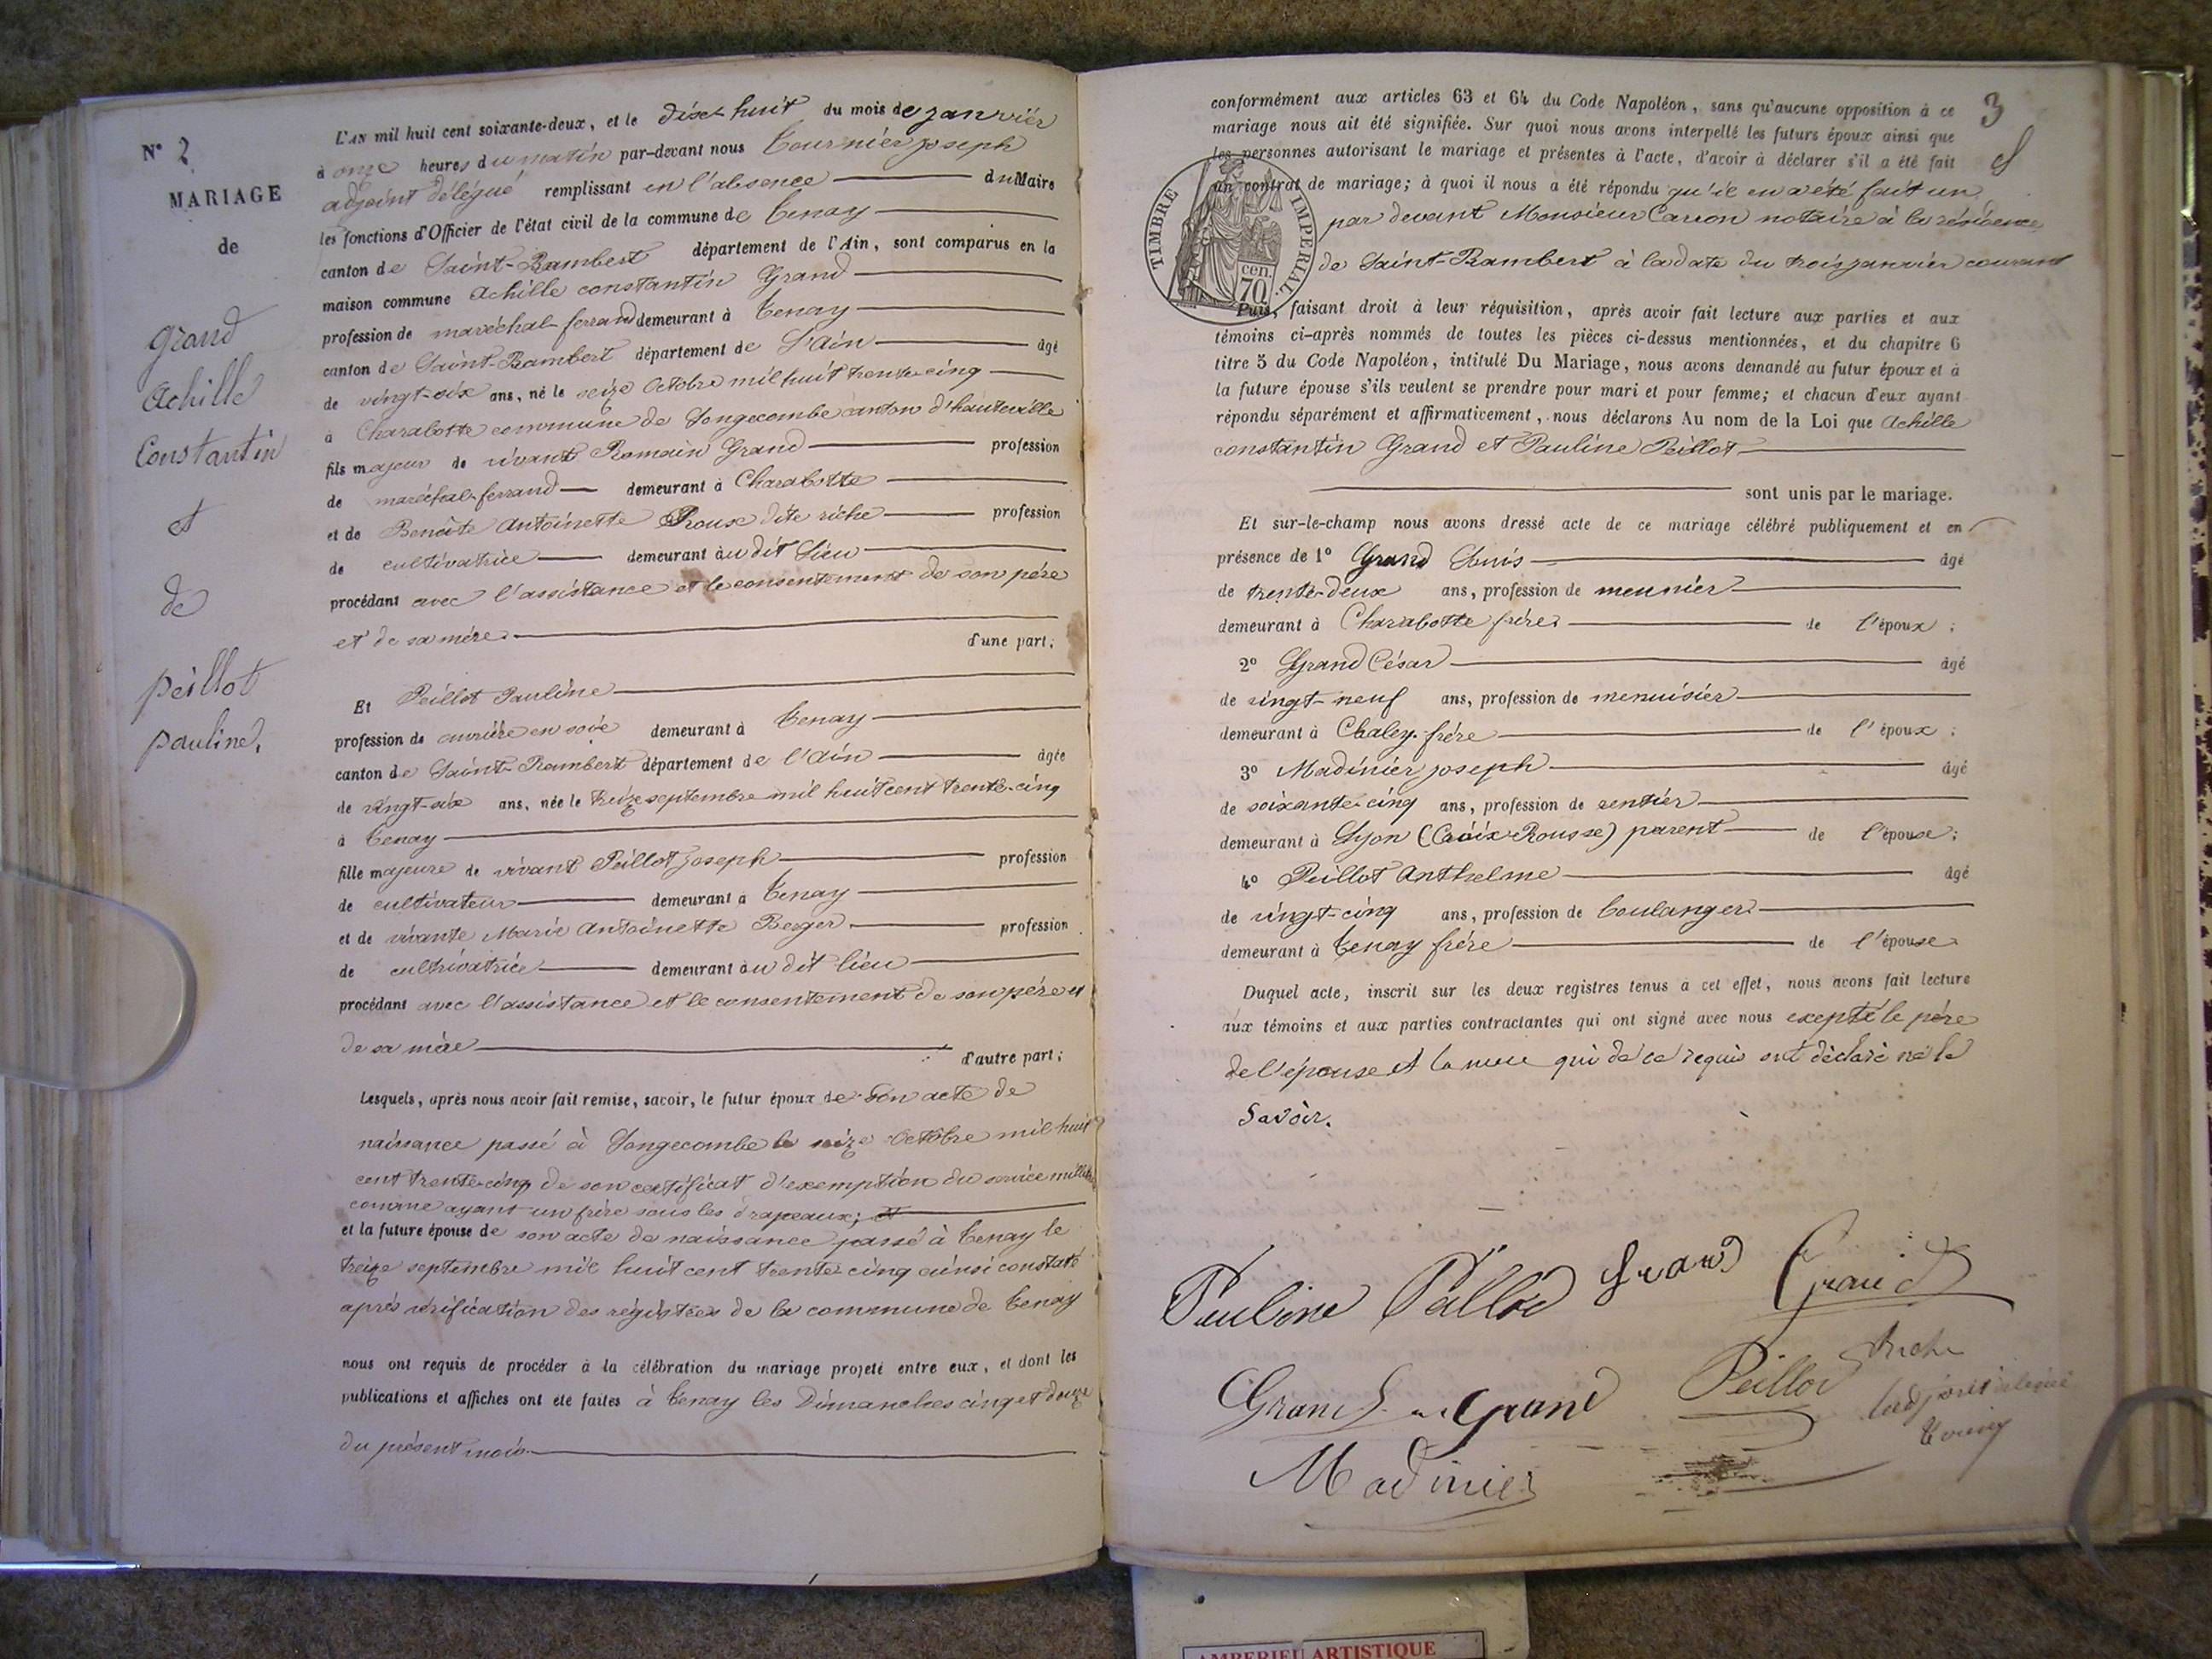 N° 2
MARIAGE
de
Grand
Achille
Constantin
et
de
peillot
pauline.
L'AN mil huit cent soixante-deux, et le dix-huit du mois de janvier
à onze heures du matin par-devant nous Tournier joseph
adjoint délégué remplissant en l'absence du Maire
les fonctions d'Officier de l'état civil de la commune de Tenay
canton de Saint-Rambert département de l'Ain, sont comparus en la
maison commune Achille constantin Grand
profession de maréchal-ferrand demeurant à Tenay
canton de Saint-Rambert département de L'Ain âgé
de vingt-six ans, né le seize Octobre mil huit trente-cinq
à Charabotte commune de Longecombe canton d'hauteville
fils majeur de vivant Romain Grand profession
de maréchal-ferrand demeurant à Charabotte
et de Benoite Antoinette Roux dite riche profession
de cultivatrice demeurant au dit Lieu
procédant avec l'assistance et le consentement de son père
et de sa mère d'une part;
Et Peillot Pauline
profession de ouvrière en soie demeurant à Tenay
canton de Saint-Rambert département de l'Ain âgée
de vingt-six ans, née le treize septembre mil huit cent trente-cinq
à Tenay
fille majeure de vivant Peillot Joseph profession
de cultivateur demeurant à Tenay
et de vivante Marie Antoinette Berger profession
de cultivatrice demeurant au dit lieu
procédant avec l'assistance et le consentement de son père et
de sa mère d'autre part;
Lesquels, après nous avoir fait remise, savoir, le futur époux de son acte de
naissance passé à Longecombe le seize Octobre mil huit
cent trente-cinq de son certificat d'exemption du service
comme ayant un frère sous les drapeaux; et
et la future épouse de son acte de naissance passé à Tenay le
treize septembre mil huit cent trente-cinq ainsi constaté
après vérification des régistres de la commune de Tenay
nous ont requis de procéder à la célébration du mariage projeté entre eux, et dont les
publications et affiches ont été faites à Tenay les Dimanches cinq et douze
du présent mois
3
conformément aux articles 63 et 64 du Code Napoléon, sans qu'aucune opposition à ce
mariage nous ait été signifiée. Sur quoi nous avons interpellé les futurs époux ainsi que
les personnes autorisant le mariage et présentes à l'acte, d'avoir à déclarer s'il a été fait
un contrat de mariage; à quoi il nous a été répondu qu'il en a été fait un
par devant Monsieur Carron notaire à la résidence
de Saint-Rambert à la date du trois janvier courant
TIMBRE IMPERIAL.
70 cen.
Puis, faisant droit à leur réquisition, après avoir fait lecture aux parties et aux
témoins ci-après nommés de toutes les pièces ci-dessus mentionnées, et du chapitre 6
titre 5 du Code Napoléon, intitulé Du Mariage, nous avons demandé au futur époux et à
la future épouse s'ils veulent se prendre pour mari et pour femme; et chacun d'eux ayant
répondu séparément et affirmativement, nous déclarons Au nom de la Loi que Achille
constantin Grand et Pauline Peillot
sont unis par le mariage.
Et sur-le-champ nous avons dressé acte de ce mariage célébré publiquement et en
présence de 1° Grand Louis âgé
de trente-deux ans, profession de meunier
demeurant à Charabotte frère de l'époux;
2° Grand César âgé
de vingt-neuf ans, profession de menuisier
demeurant à Chaley frère de l'époux;
3° Madinier joseph âgé
de soixante-cinq ans, profession de rentier
demeurant à Lyon (Croix-Rousse) parent de l'épouse;
4° Peillot Anthelme âgé
de vingt-cinq ans, profession de boulanger
demeurant à Tenay frère de l'épouse
Duquel acte, inscrit sur les deux registres tenus à cet effet, nous avons fait lecture
aux témoins et aux parties contractantes qui ont signé avec nous excepté le père
de l'épouse et la mère qui de ce requis ont déclaré ne le
savoir.
Pauline Peillod Grand Grand
Grand Grand Peillod
l'adjoint délégué
Madinier
AMBERIEU ARTISTIQUE